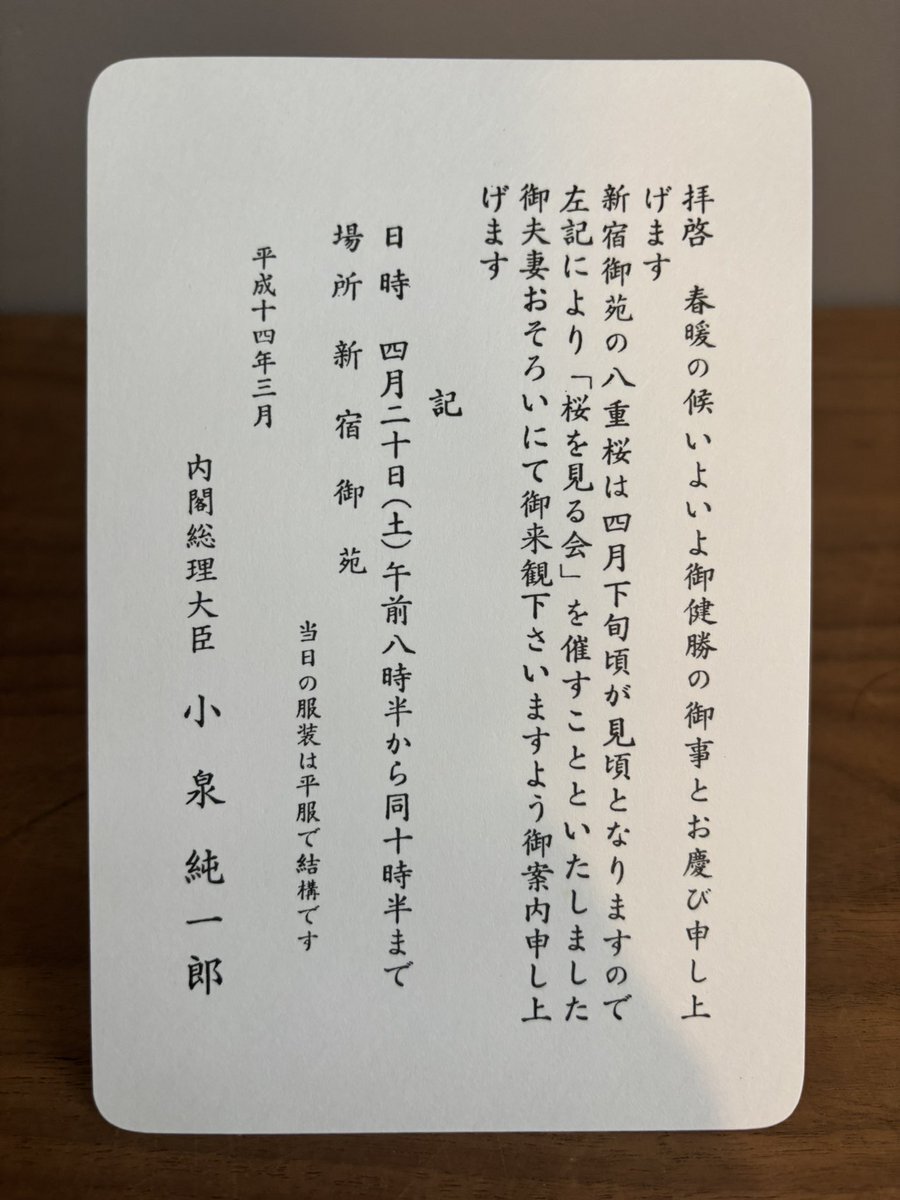 拝啓　春暖の候いよいよ御健勝の御事とお慶び申し上
げます
新宿御苑の八重桜は四月下旬頃が見頃となりますので
左記により「桜を見る会」を催すことといたしました
御夫妻おそろいにて御来観下さいますよう御案内申し上
げます
記
日時　四月二十日（土）午前八時半から同十時半まで
場所　新宿御苑
当日の服装は平服で結構です
平成十四年三月
内閣総理大臣　小泉純一郎